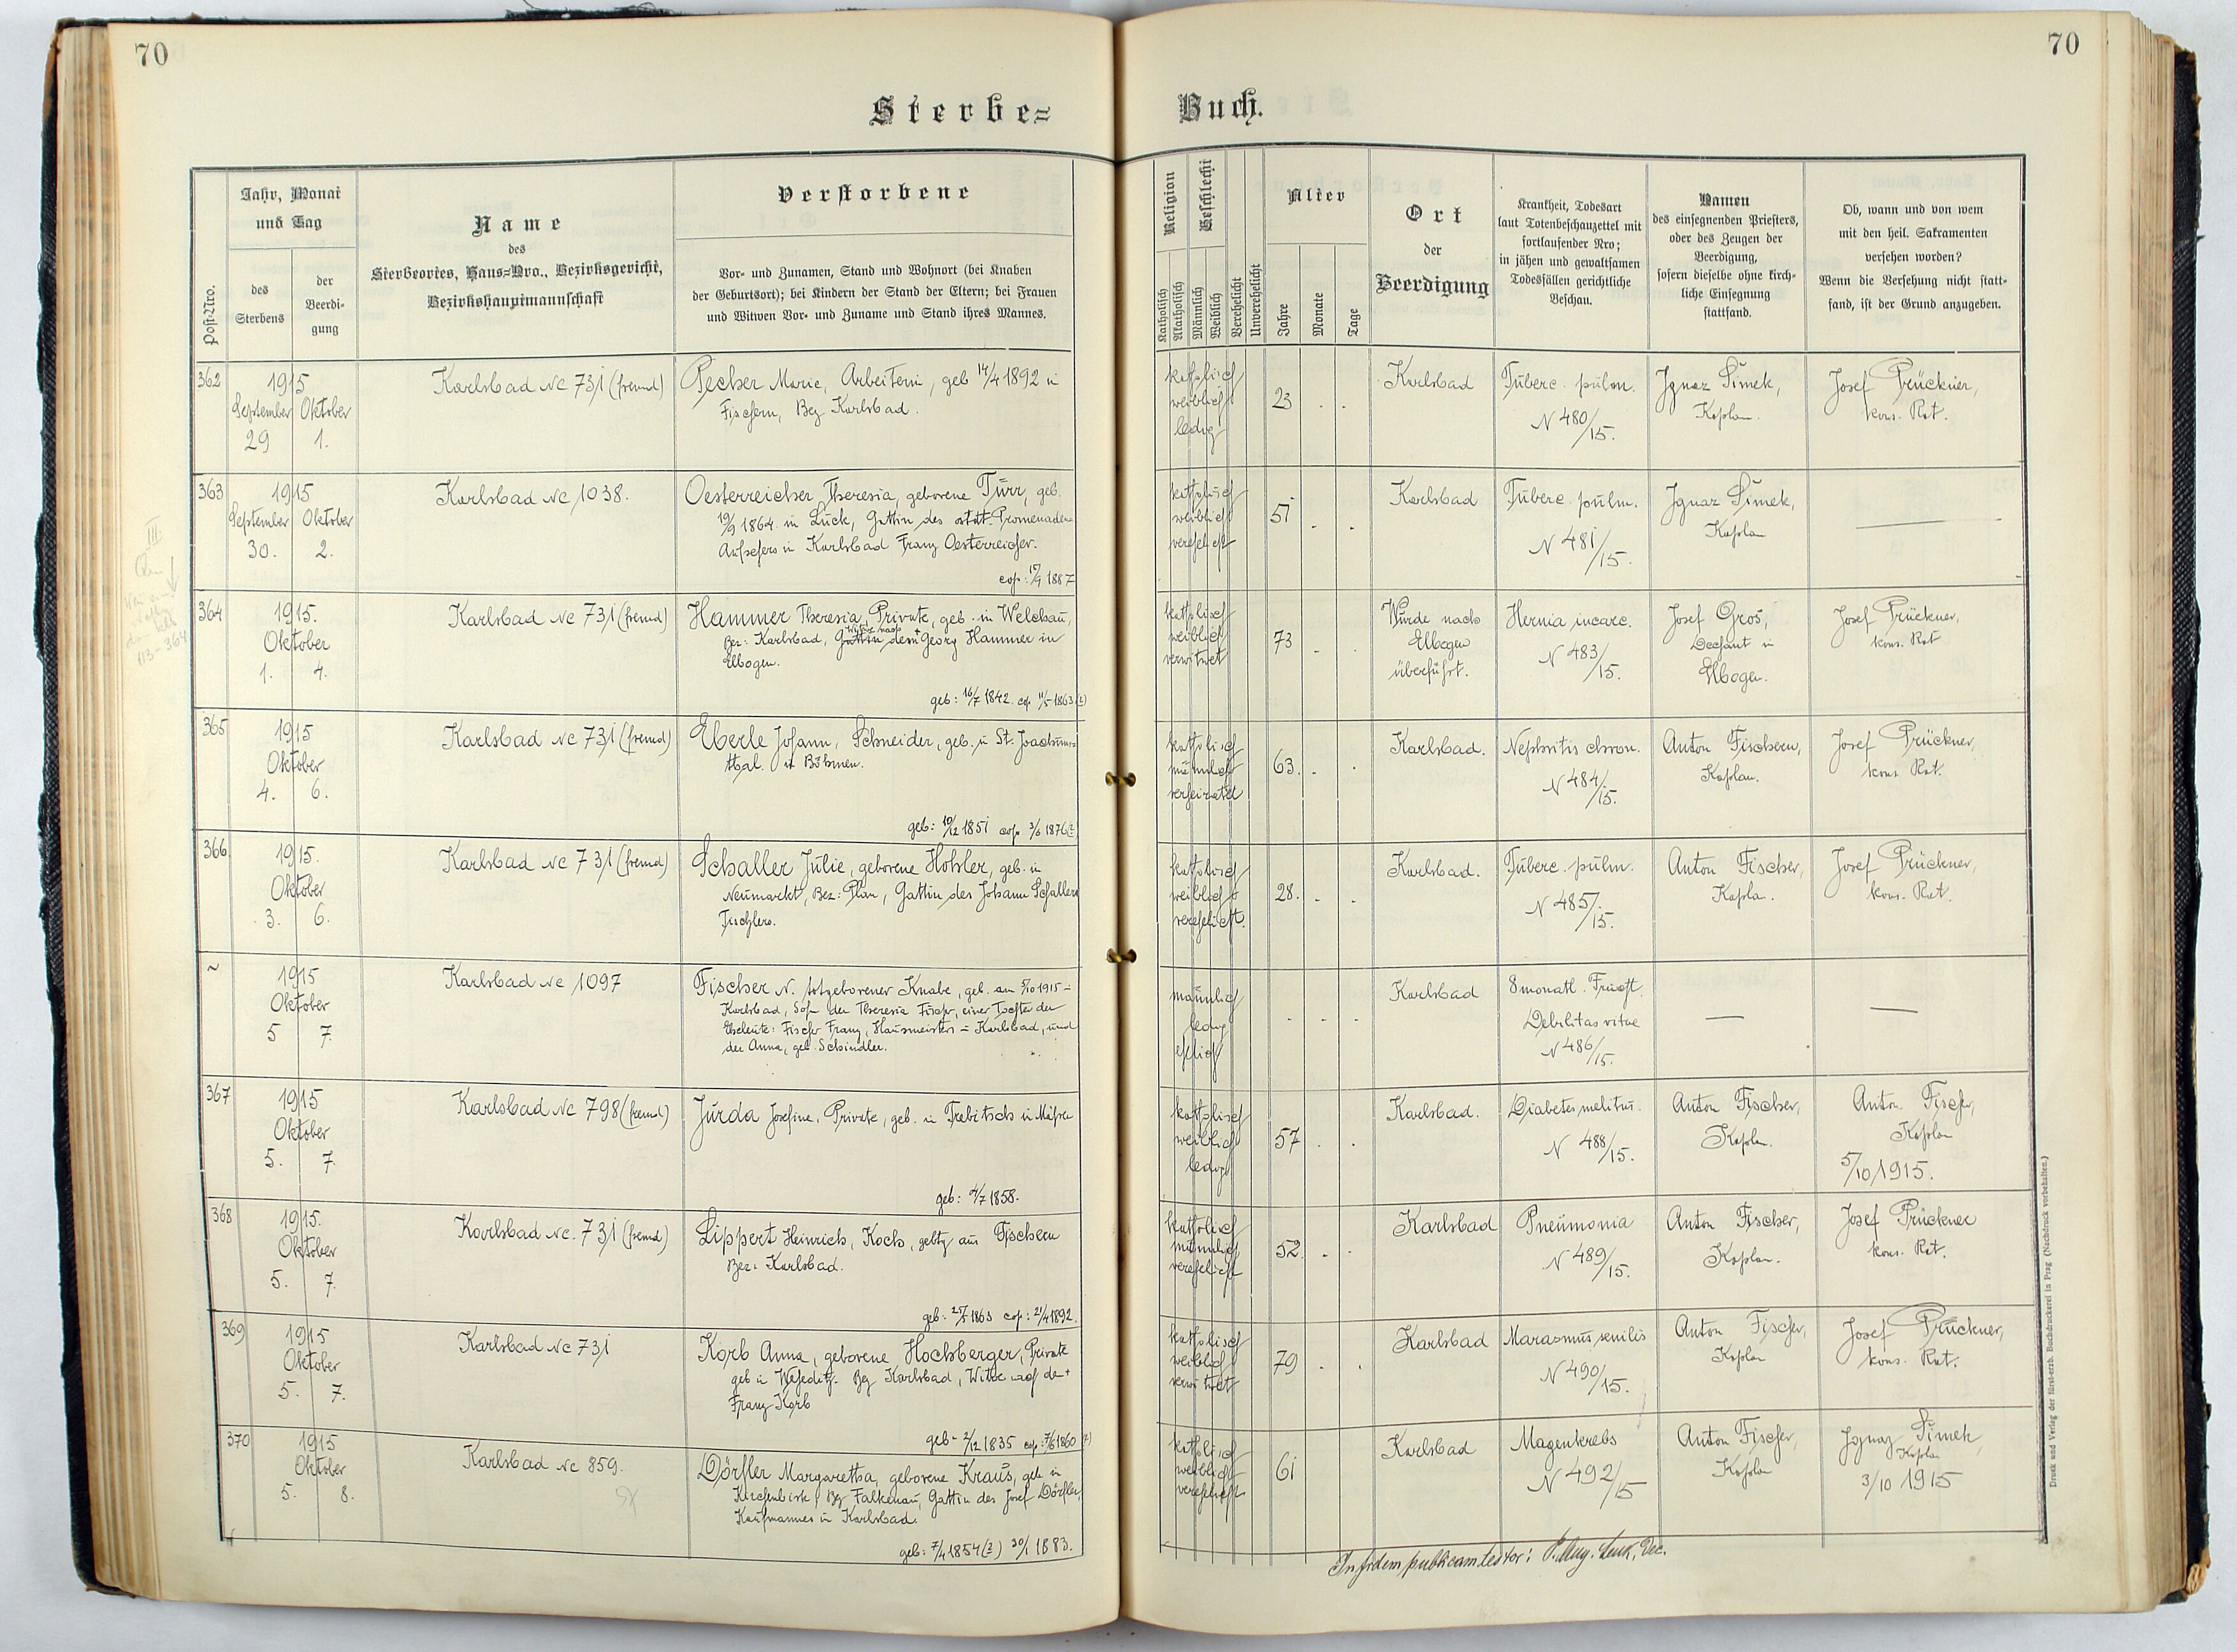 70
70
Sterbe=
Buch.
Post-Nro.
Jahr, Monat
und Tag
des
Sterbens
der
Beerdi-
gung
Name
des
Sterbeortes, Haus=Nro., Bezirksgericht,
Bezirkshauptmannschaft
Verstorbene
Vor- und Zunamen, Stand und Wohnort (bei Knaben
der Geburtsort); bei Kindern der Stand der Eltern; bei Frauen
und Witwen Vor- und Zuname und Stand ihres Mannes.
Religion
Katholisch
Akatholisch
Geschlecht
Männlich
Weiblich
Verehelicht
Unverehelicht
Alter
Jahre
Monate
Tage
Ort
der
Beerdigung
Krankheit, Todesart
laut Totenbeschauzettel mit
fortlaufender Nro;
in jähen und gewaltsamen
Todesfällen gerichtliche
Beschau.
Namen
des einsegnenden Priesters,
oder des Zeugen der
Beerdigung,
sofern dieselbe ohne kirch-
liche Einsegnung
stattfand.
Ob, wann und von wem
mit den heil. Sakramenten
versehen worden?
Wenn die Versehung nicht statt-
fand, ist der Grund anzugeben.
362
1915
September Oktober
29 1.
Karlsbad Nc 731 (fremd)
Pecher Marie, Arbeiterin, geb 14/4 1892 in
Fischern, Bez Karlsbad.
katholisch
weiblich
ledig
23 . .
Karlsbad
Tuberc. pulm.
N 480/15.
Ignaz Šimek,
Kaplan.
Josef Prückner,
kons. Rat.
363
1915
September Oktober
30. 2.
Karlsbad Nc 1038.
Oesterreicher Theresia, geborene Türr, geb.
19/9 1864 in Luck, Gattin des städt. Promenaden-
Aufsehers in Karlsbad Franz Oesterreicher.
cop: 17/9 1887
katholisch
weiblich
verehelicht
51 . .
Karlsbad
Tuberc. pulm.
N 481/15.
Ignaz Šimek,
Kaplan
—
III.
113-364
364
1915.
Oktober
1. 4.
Karlsbad Nc 731 (fremd)
Hammer Theresia, Private, geb. in Welchau,
Bez: Karlsbad, Gattin Witwe nach dem + Georg Hammer in
Elbogen.
geb: 16/7 1842. cop 11/5 1863 (?)
katholisch
weiblich
verwitwet
73 . .
Wurde nach
Elbogen
überführt.
Hernia incarc.
N 483/15.
Josef Groš,
Dechant in
Elbogen.
Josef Prückner,
kons. Rat
365
1915
Oktober
4. 6.
Karlsbad Nc 731 (fremd)
Eberle Johann, Schneider, geb. in St. Joachims-
thal. in Böhmen.
geb: 10/12 1851 cop 3/6 1876 (?)
katholisch
männlich
verheiratet
63. . .
Karlsbad.
Nephritis chron.
N 484/15.
Anton Fischern,
Kaplan.
Josef Prückner,
kons. Rat.
366
1915.
Oktober
3. 6.
Karlsbad Nc 731 (fremd)
Schaller Julie, geborene Hohler, geb. in
Neumarkt, Bez: Plan, Gattin des Johann Schallers
Tischlers.
katholisch
weiblich
verehelicht.
28. . .
Karlsbad.
Tuberc. pulm.
N 485/15.
Anton Fischer,
Kaplan.
Josef Prückner,
kons. Rat.
~
1915
Oktober
5 7.
Karlsbad Nc 1097
Fischer N. totgeborener Knabe, geb. am 5/10 1915 in
Karlsbad, Sohn der Theresia Fischer, einer Tochter der
Eheleute: Fischer Franz, Hausmeisters in Karlsbad, und
der Anna, geb. Schindler.
männlich
ledig
ehelich
. . .
Karlsbad
8monatl. Frucht
Debilitas vitae
N 486/15.
—
—
367
1915
Oktober
5. 7.
Karlsbad Nc 798 (fremd)
Jurda Josefine, Private, geb. in Trebitsch in Mähren
geb: 4/7 1858.
katholisch
weiblich
ledig
57 . .
Karlsbad.
Diabetes melitus.
N 488/15.
Anton Fischer,
Kaplan.
Anton Fischer,
Kaplan
5/10 1915.
368
1915.
Oktober
5. 7.
Karlsbad Nc. 731 (fremd)
Lippert Heinrich, Koch, gebtg aus Fischern
Bez: Karlsbad.
geb: 25/5 1863 cop: 21/4 1892.
katholisch
männlich
verehelicht
52. . .
Karlsbad
Pneumonia
N 489/15.
Anton Fischer,
Kaplan.
Josef Prückner
kons. Rat.
369
1915
Oktober
5. 7.
Karlsbad Nc 731
Korb Anna, geborene Hochberger, Private
geb in Weheditz. Bez Karlsbad, Witwe nach dem +
Franz Korb
geb- 2/12 1835 cop: 7/6 1860 (?)
katholisch
weiblich
verwitwet
79 . .
Karlsbad
Marasmus senilis
N 490/15.
Anton Fischer,
Kaplan
Josef Prückner,
kons. Rat.
370
1915
Oktober
5. 8.
Karlsbad Nc 859.
Dörfler Margaretha, geborene Kraus, geb in
Kirchenbirk, Bez Falkenau, Gattin des Josef Dörfler,
Kaufmannes in Karlsbad.
geb: 7/4 1854 (?) 30/1 1883.
katholisch
weiblich
verehelicht
61
Karlsbad
Magenkrebs
N 492/15
Anton Fischer,
Kaplan
Ignaz Šimek,
Kaplan
3/10 1915
In fidem publicam testor: P. Aug. Lenk, Dec.
Druck und Verlag der fürst-erzb. Buchdruckerei in Prag (Nachdruck vorbehalten.)